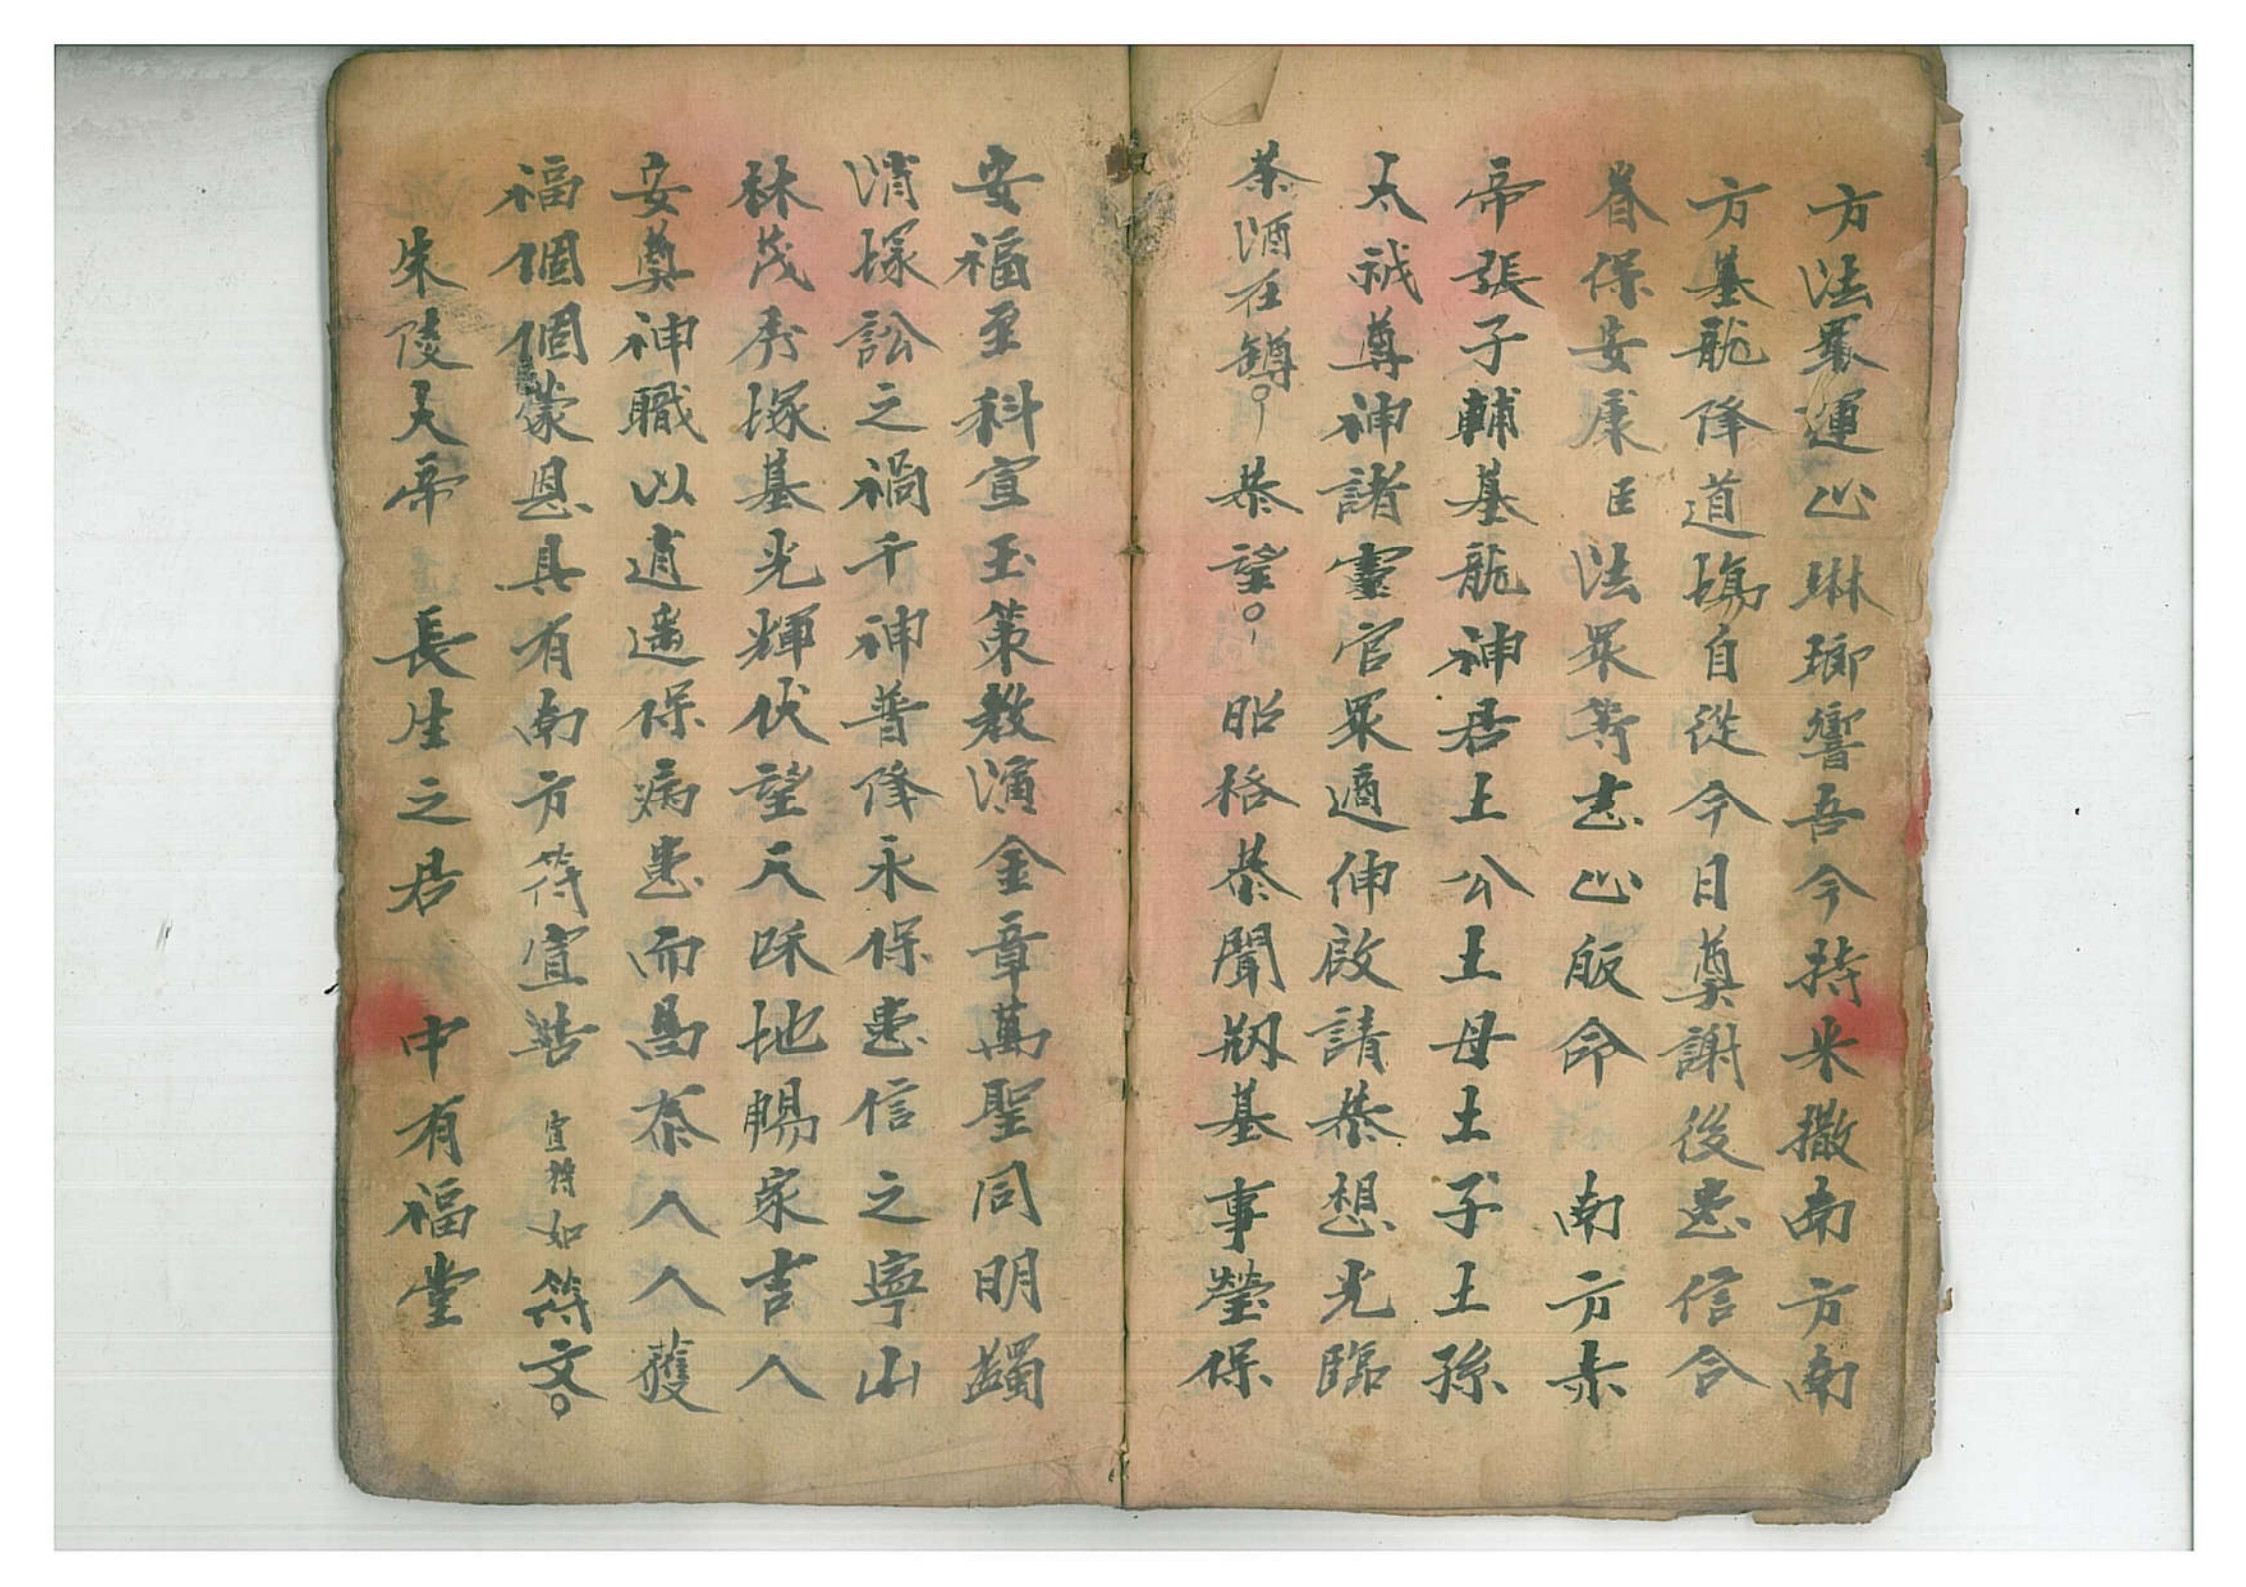 方法眾運心琳瑯響吾今持来撒南方南
方墓龍降道塲自從今日奠謝後患信合
眷保安康臣法眾等志心皈命南方赤
帝張子輔墓龍神君土公土母土子土孫
太祴尊神諸靈官眾適伸啟請恭想光臨
茶酒在罇恭望昭格恭聞剏墓事瑩保
安福至科宣玉策教演金章萬聖同明蠲
消塚訟之禍千神普降永保患信之寧山
林茂秀塚墓光輝伏望天咊地賜家吉人
安奠神職以逍遥保病患而昌泰人人獲
福個個蒙恩具有南方符宣告宣符如符文
朱陵大帝 長生之君 中有福堂